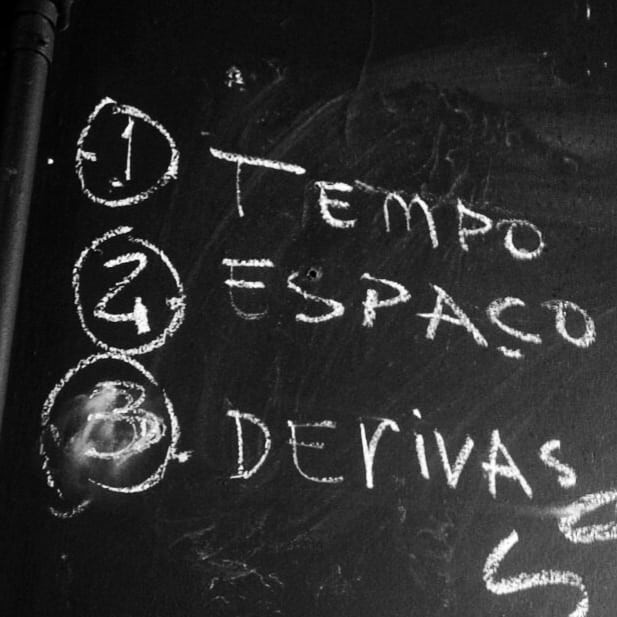 1 TEMPO
2 ESPAÇO
3 DERiVAS